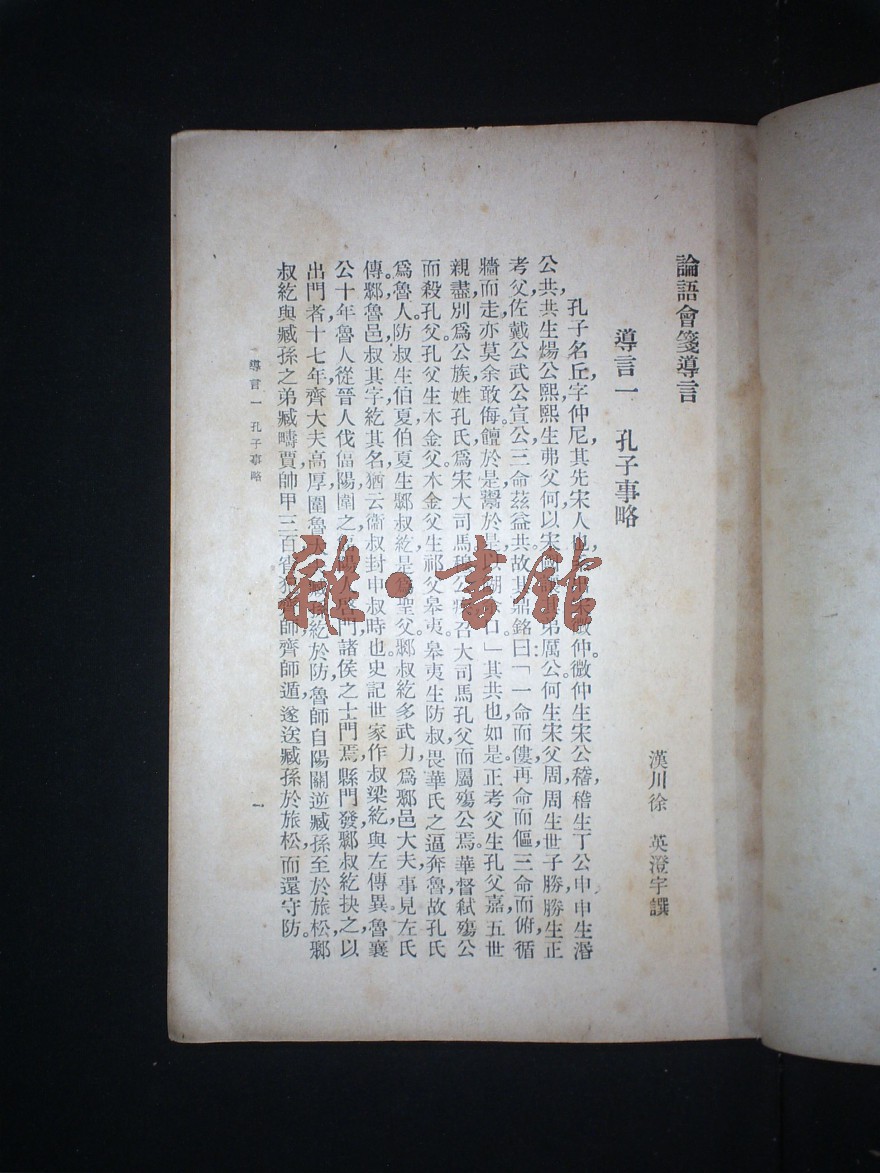 論語會箋導言
漢川徐　英澄宇譔
導言一　孔子事略
孔子名丘，字仲尼，其先宋人也，微仲。微仲生宋公稽，稽生丁公申，申生湣
公共，共生煬公熙，熙生弗父何，以宋弟厲公。何生宋父周，周生世子勝，勝生正
考父，佐戴公武公宣公，三命茲益共，故其鼎銘曰：「一命而僂，再命而傴，三命而俯，循
牆而走，亦莫余敢侮。饘於是，鬻於是，口」其共也如是。正考父生孔父嘉，五世
親盡，別爲公族，姓孔氏，爲宋大司馬。公召大司馬孔父而屬殤公焉。華督弒殤公
而殺孔父。孔父生木金父。木金父生祁父皋夷。皋夷生防叔，畏華氏之逼奔魯，故孔氏
爲魯人。防叔生伯夏，伯夏生鄹叔紇，是爲聖父。鄹叔紇多武力，爲鄹邑大夫，事見左氏
傳。鄹，魯邑，叔其字，紇其名，猶云衞叔封申叔時也。史記世家作叔梁紇，與左傳異。魯襄
公十年，魯人從晉人伐偪陽，圍之，啓門，諸侯之士門焉，縣門發，鄹叔紇抉之以
出門者。十七年，齊大夫高厚圍魯紇於防，魯師自陽關逆臧孫至於旅松，鄹
叔紇與臧孫之弟臧疇，賈帥甲三百，宵犯齊師，齊師遁，遂送臧孫於旅松，而還守防。
導言一　孔子事略
一
雜·書館